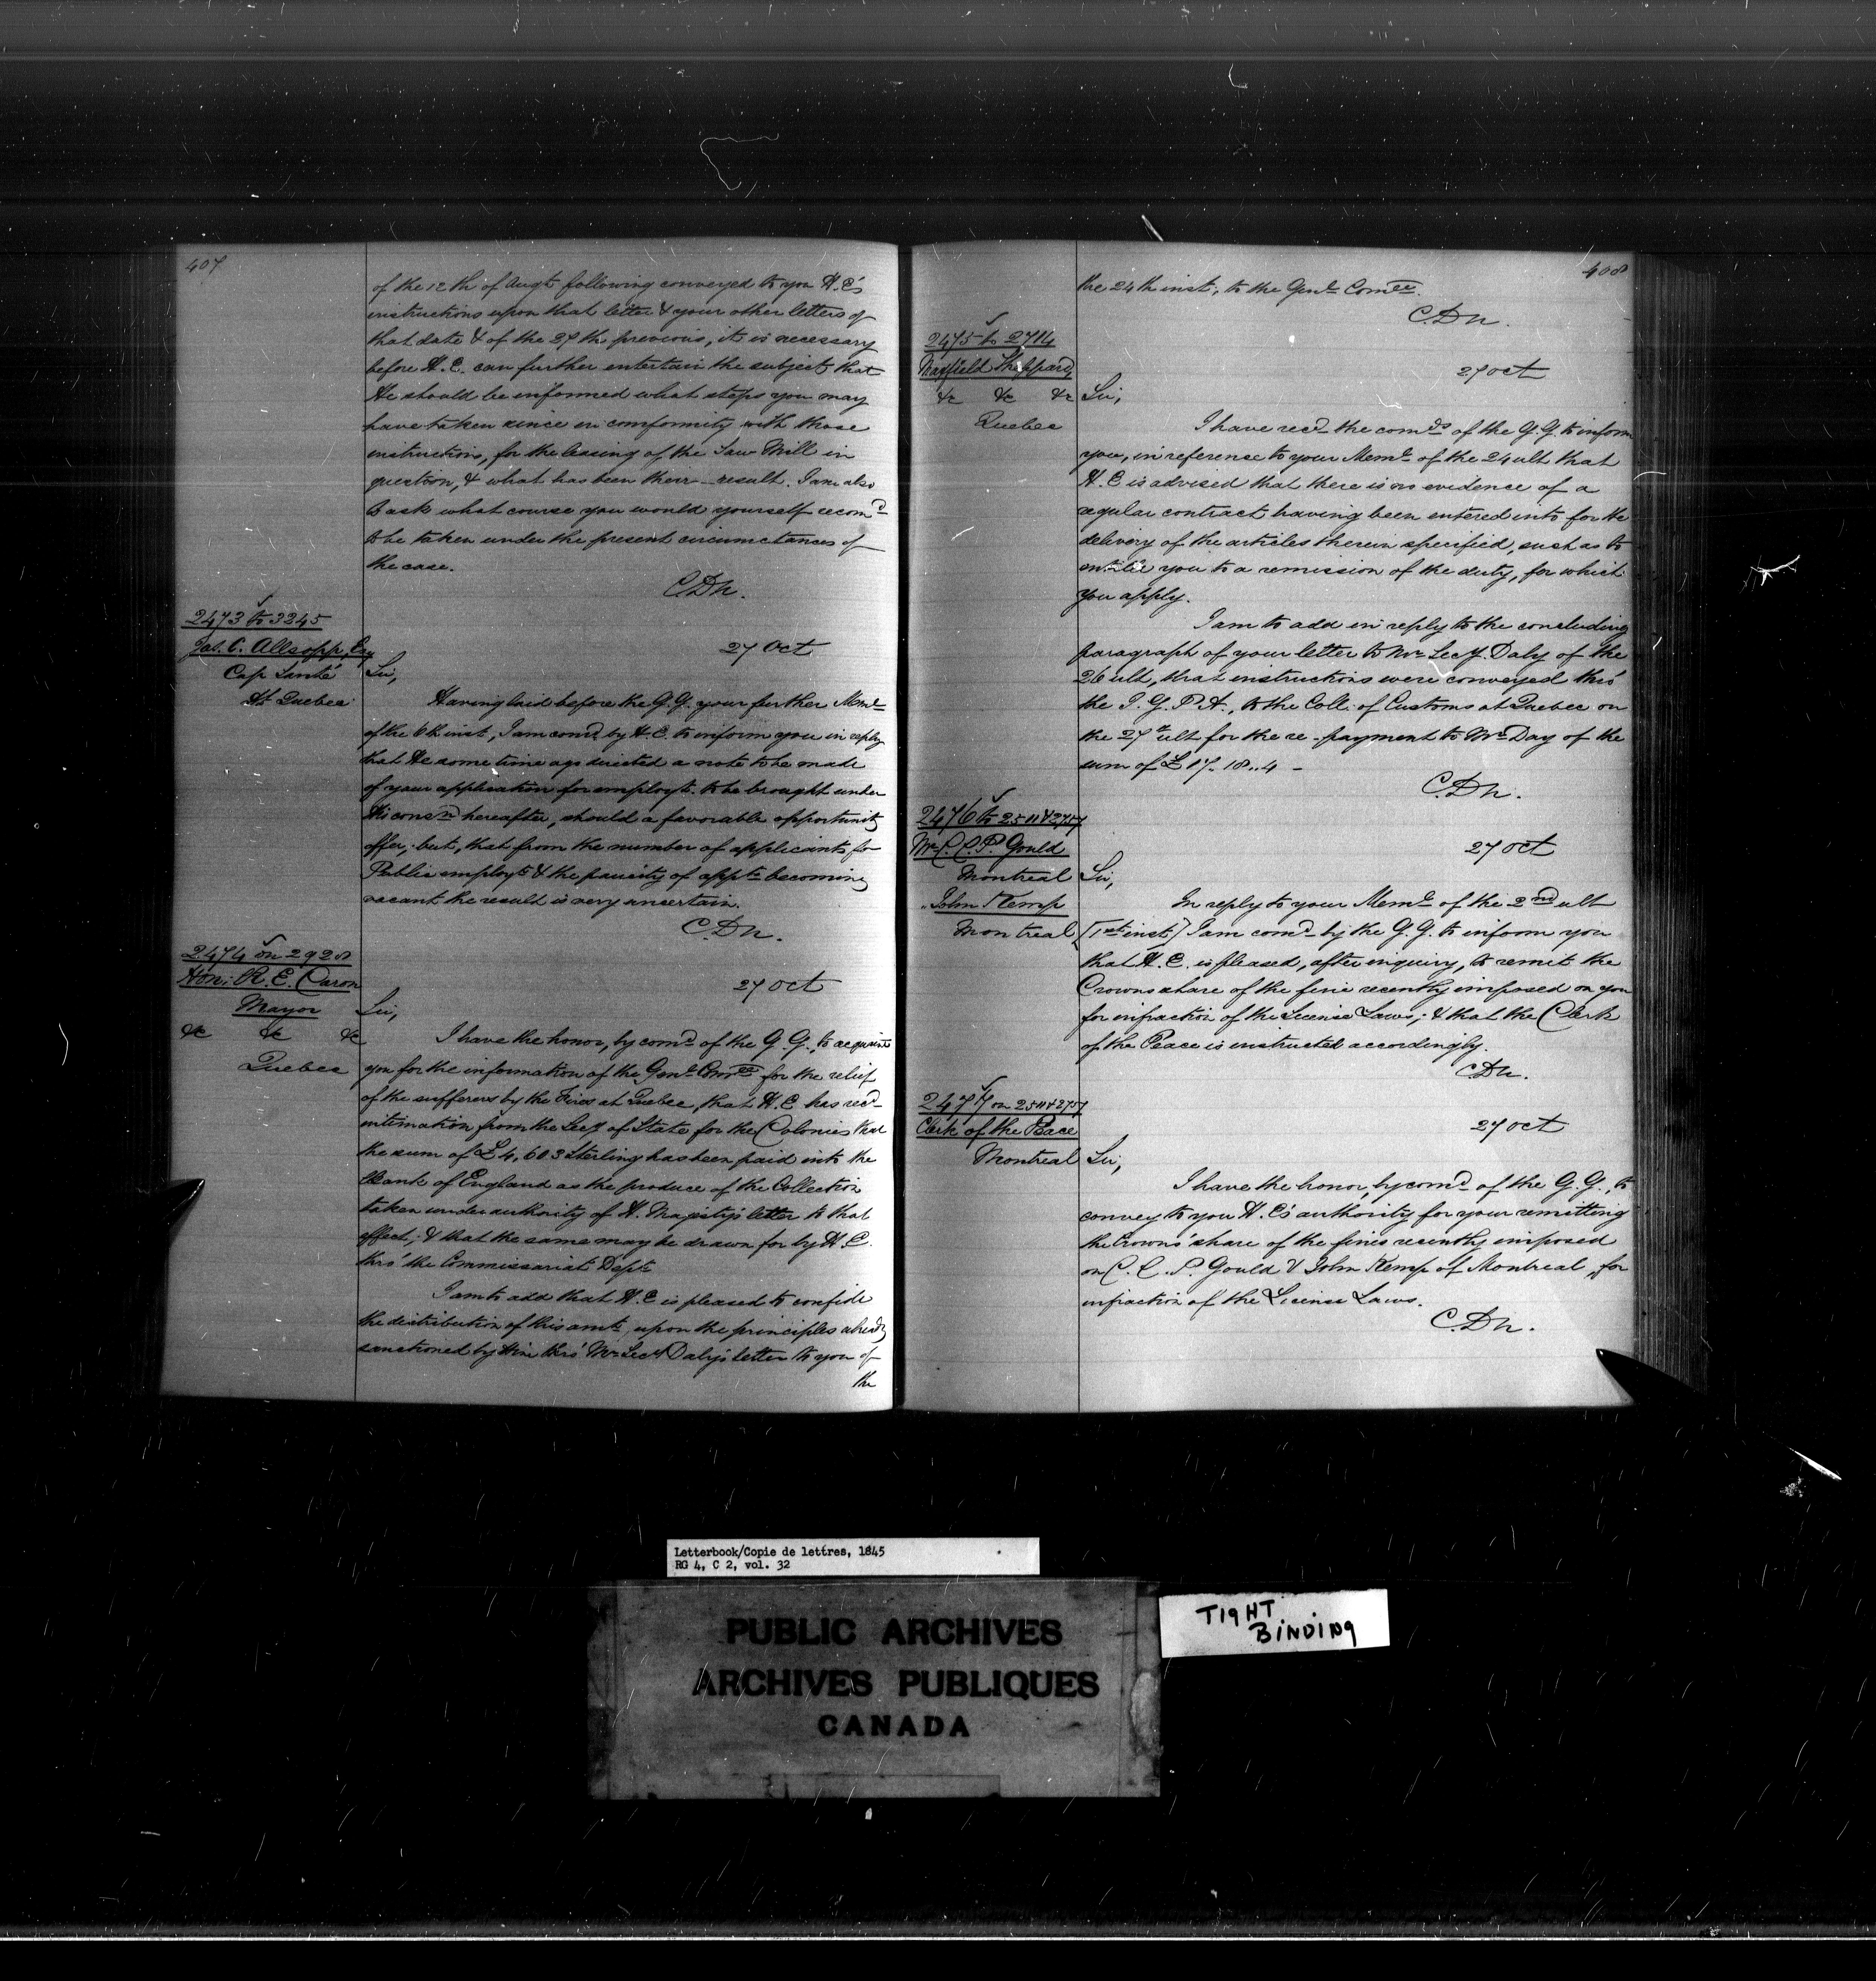 407
of the 12th of Augt following conveyed to you H.E's
instructions upon that letter & your other letters of
that date & of the 29th previous, it is necessary
before H.E. can further entertain the subject that
He should be informed what steps you may
have taken since in conformity with those
instructions, for the leasing of the Saw Mill in
question, & what has been their result. I am also
to ask what course you would yourself recomd
to be taken under the present circumstances of
the case.
C.Dn.
2473 to 3245
Jas. C. Allsopp, Esq
Cap Santé
Dt Quebec
27 Oct
Sir,
Having laid before the G.G. your further Meml
of the 6th inst, I am comd by H.E. to inform you in reply
that He some time ago directed a note to be made
of your application for employt. to be brought under
His consn hereafter, should a favorable opportunity
offer, but, that from the number of applicants for
Public employt & the paucity of appts becoming
vacant the result is very uncertain.
C.Dn.
2474 on 2928
Hon: R. E. Caron
Mayor
&c &c &c
Quebec
27 Oct
Sir,
I have the honor, by comd of the G.G., to acquaint
you for the information of the Genl Comee for the relief
of the sufferers by the Fires at Quebec, that H.E. has recd
intimation from the Secy of State for the Colonies that
the sum of £4,603 Sterling has been paid into the
Bank of England as the produce of the Collection
taken under authority of H. Majesty's letter to that
effect; & that the same may be drawn for by H.E.
thro' the Commissariat Dept
I am to add that H.E. is pleased to confide
the distribution of this amt. upon the principles already
sanctioned by Him thro' Mr Secy Daly's letter to you of
the
408
the 24th inst, to the Genl Comee.
C.Dn.
2475 to 2714
Maxfield Sheppard
&c &c &c
Quebec
27 Oct
Sir,
I have recd the comds of the G.G. to inform
you, in reference to your Meml of the 24 ult that
H.E is advised that there is no evidence of a
regular contract having been entered into for the
delivery of the articles therein specified, such as to
entitle you to a remission of the duty, for which
you apply.
I am to add in reply to the concluding
paragraph of your letter to Mr Secy. Daly of the
26 ult, that instructions were conveyed thro'
the I.G.P.A., to the Coll: of Customs at Quebec on
the 27th ult for the re-payment to Mr Day of the
sum of £17.18..4 -
C.Dn.
2476 to 2511 & 2757
Mr C. C. P. Gould
Montreal
John Kemp
Montreal
27 Oct
Sir,
In reply to your Meml of the 2nd ult
[1st inst] I am comd by the G.G. to inform you
that H.E. is pleased, after inquiry, to remit the
Crowns share of the fine recently imposed on you
for infraction of the License Laws; & that the Clerk
of the Peace is instructed accordingly.
C.Dn.
2477 on 2511 & 2757
Clerk of the Peace
Montreal
27 Oct
Sir,
I have the honor, by comd of the G.G., to
convey to you H.E's authority for your remitting
the Crowns' share of the fines recently imposed
on C. C. P. Gould & John Kemp of Montreal for
infraction of the License Laws.
C.Dn.
Letterbook/Copie de lettres, 1845
RG 4, C 2, vol. 32
PUBLIC ARCHIVES
ARCHIVES PUBLIQUES
CANADA
TIGHT
BINDING